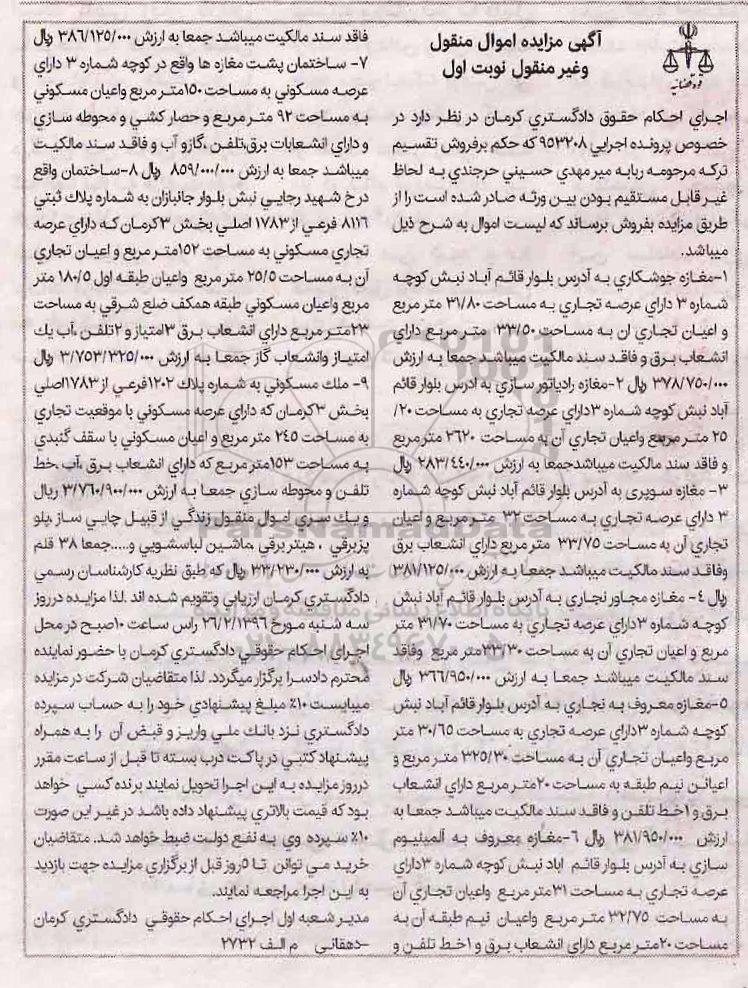 قوه قضاییه
آگهی مزایده اموال منقول
وغیر منقول نوبت اول
اجراي احکام حقوق دادگستري کرمان در نظر دارد در
خصوص پرونده اجرايي ۹۵۳۲۰۸ که حکم برفروش تقسيم
ترکه مرحومه ربابه مير مهدي حسيني حرجندي به لحاظ
غير قابل مستقيم بودن بين ورثه صادر شده است را از
طريق مزايده بفروش برساند که ليست اموال به شرح ذيل
ميباشد.
۱-مغازه جوشکاري به آدرس بلوار قائم آباد نبش کوچه
شماره ۳ داراي عرصه تجاري به مساحت ۳۱/۸۰ متر مربع
و اعيان تجاري ان به مساحت ۳۳/۵۰ متر مربع داراي
انشعاب برق و فاقد سند مالکيت ميباشد جمعا به ارزش
۳۷۸/۷۵۰/۰۰۰ ريال ۲-مغازه رادياتور سازي به ادرس بلوار قائم
آباد نبش کوچه شماره ۳داراي عرصه تجاري به مساحت ۲۰/
۲۵ متر مربع واعيان تجاري آن به مساحت ۲۶۲۰ مترمربع
و فاقد سند مالکيت ميباشدجمعا به ارزش ۲۸۳/۴۴۰/۰۰۰ ريال
۳- مغازه سوپری به آدرس بلوار قائم آباد نبش کوچه شماره
۳ داراي عرصه تجاري به مساحت ۳۲ متر مربع و اعيان
تجاري آن به مساحت ۳۳/۷۵ متر مربع داراي انشعاب برق
وفاقد سند مالکيت ميباشد جمعا به ارزش ۳۸۱/۱۲۵/۰۰۰
ريال ۴- مغازه مجاور نجاري به آدرس بلوار قائم آباد نبش
کوچه شماره ۳داراي عرصه تجاري به مساحت ۳۱/۷۰ متر
مربع و اعيان تجاري آن به مساحت ۳۳/۳۰متر مربع وفاقد
سند مالکيت ميباشد جمعا به ارزش ۳۶۶/۹۵۰/۰۰۰ ريال
۵-مغازه معروف به نجاري به آدرس بلوار قائم آباد نبش
کوچه شماره ۳داراي عرصه تجاري به مساحت ۳۰/۶۵ متر
مربع واعيان تجاري آن به مساحت ۳۲۵/۳۰ متر مربع و
اعيانن نيم طبقه به مساحت ۲۰متر مربع داراي انشعاب
برق و ۱خط تلفن و فاقد سند مالکيت ميباشد جمعا به
ارزش ۳۸۱/۹۵۰/۰۰۰ ريال ۶-مغازه معروف به آلمينيوم
سازي به آدرس بلوار قائم اباد نبش کوچه شماره ۳داراي
عرصه تجاري به مساحت ۳۱متر مربع واعيان تجاري آن
به مساحت ۳۲/۷۵ متر مربع واعيان نيم طبقه آن به
مساحت ۲۰متر مربع داراي انشعاب برق و ۱خط تلفن و
فاقد سند مالکيت ميباشد جمعا به ارزش ۳۸۶/۱۲۵/۰۰۰ ريال
۷- ساختمان پشت مغازه ها واقع در کوچه شماره ۳ داراي
عرصه مسکوني به مساحت ۱۵۰متر مربع واعيان مسکوني
به مساحت ۹۲ متر مربع و حصار کشي و محوطه سازي
و داراي انشعابات برق،تلفن ،گاز و آب و فاقد سند مالکيت
ميباشد جمعا به ارزش ۸۵۹/۰۰۰/۰۰۰ ريال ۸-ساختمان واقع
در خ شهيد رجايي نبش بلوار جانبازان به شماره پلاک ثبتي
۸۱۱۶ فرعي از ۱۷۸۳ اصلي بخش ۳کرمان که داراي عرصه
تجاري مسکوني به مساحت ۱۵۲متر مربع و اعيان تجاري
آن به مساحت ۲۵/۵ متر مربع واعيان طبقه اول ۱۸۰/۵ متر
مربع واعيان مسکوني طبقه همکف ضلع شرقي به مساحت
۲۳متر مربع داراي انشعاب برق ۳امتياز و ۲تلفن ،آب يك
امتياز وانشعاب گاز جمعا به ارزش ۳/۷۵۳/۳۲۵/۰۰۰ ريال
۹- ملك مسکوني به شماره پلاک ۱۲۰۲فرعي از ۱۷۸۳اصلي
بخش ۳کرمان که داراي عرصه مسکوني با موقعيت تجاري
به مساحت ۲۴۵ متر مربع و اعيان مسکوني با سقف گنبدي
به مساحت ۱۵۳متر مربع که داراي انشعاب برق ،آب ،خط
تلفن و محوطه سازي جمعا به ارزش ۳/۷۶۰/۹۰۰/۰۰۰ ريال
و يك سري اموال منقول زندگي از قبيل چايي ساز ،پلو
پزبرقي ، هيتر برقي ،ماشين لباسشويي و.....جمعا ۳۸ قلم
به ارزش ۳۳/۲۳۰/۰۰۰ ريال که طبق نظريه کارشناسان رسمي
دادگستري کرمان ارزيابي وتقويم شده اند .لذا مزايده درروز
سه شنبه مورخ ۲۶/۲/۱۳۹۶ راس ساعت ۱۰صبح در محل
اجراي احکام حقوقي دادگستري کرمان با حضور نماينده
محترم دادسرا برگزار ميگردد. لذا متقاضيان شرکت در مزايده
ميبايست ۱۰٪ مبلغ پيشنهادي خود را به حساب سپرده
دادگستري نزد بانك ملي واريز و قبض آن را به همراه
پيشنهاد کتبي در پاکت درب بسته تا قبل از ساعت مقرر
درروز مزايده به اين اجرا تحويل نمايند برنده کسي خواهد
بود که قيمت بالاتري پيشنهاد داده باشد در غير اين صورت
۱۰٪ سپرده وي به نفع دولت ضبط خواهد شد. متقاضيان
خريد مي توانن تا ۵روز قبل از برگزاري مزايده جهت بازديد
به اين اجرا مراجعه نمايند.
مدير شعبه اول اجراي احکام حقوقي دادگستري کرمان
-دهقاني م الف ۲۷۳۲